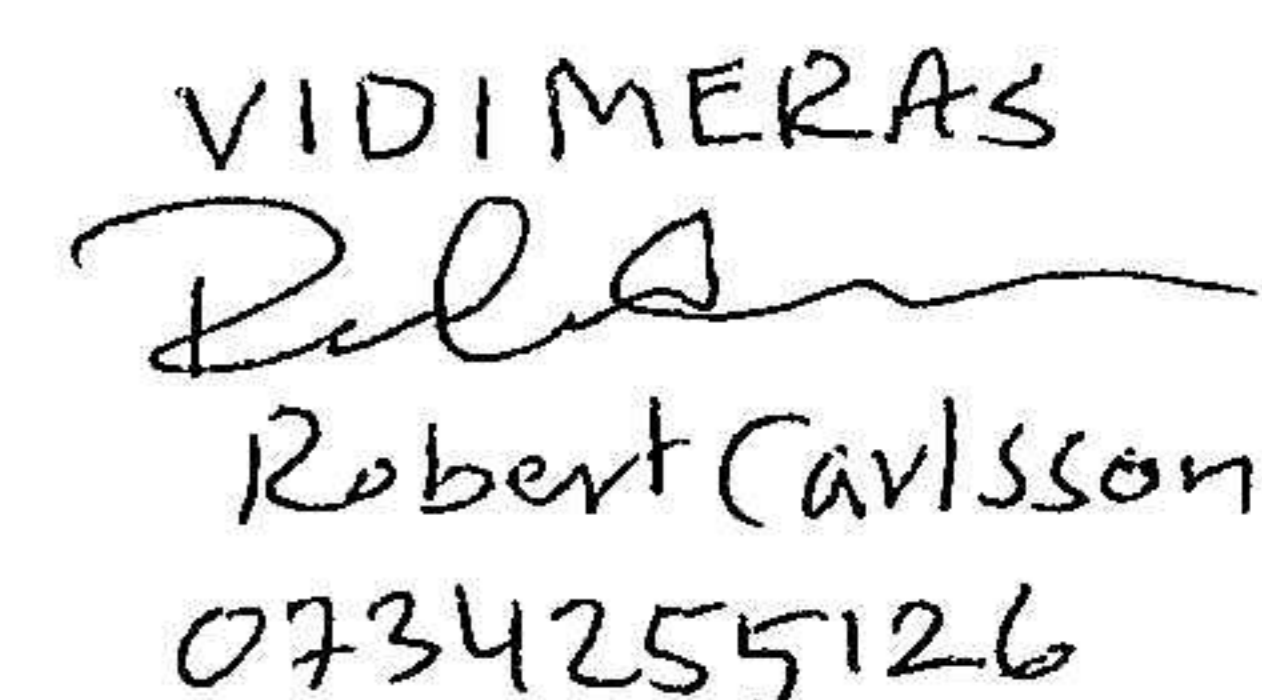 VIDIMERAS
Robert Carlsson
0734255126